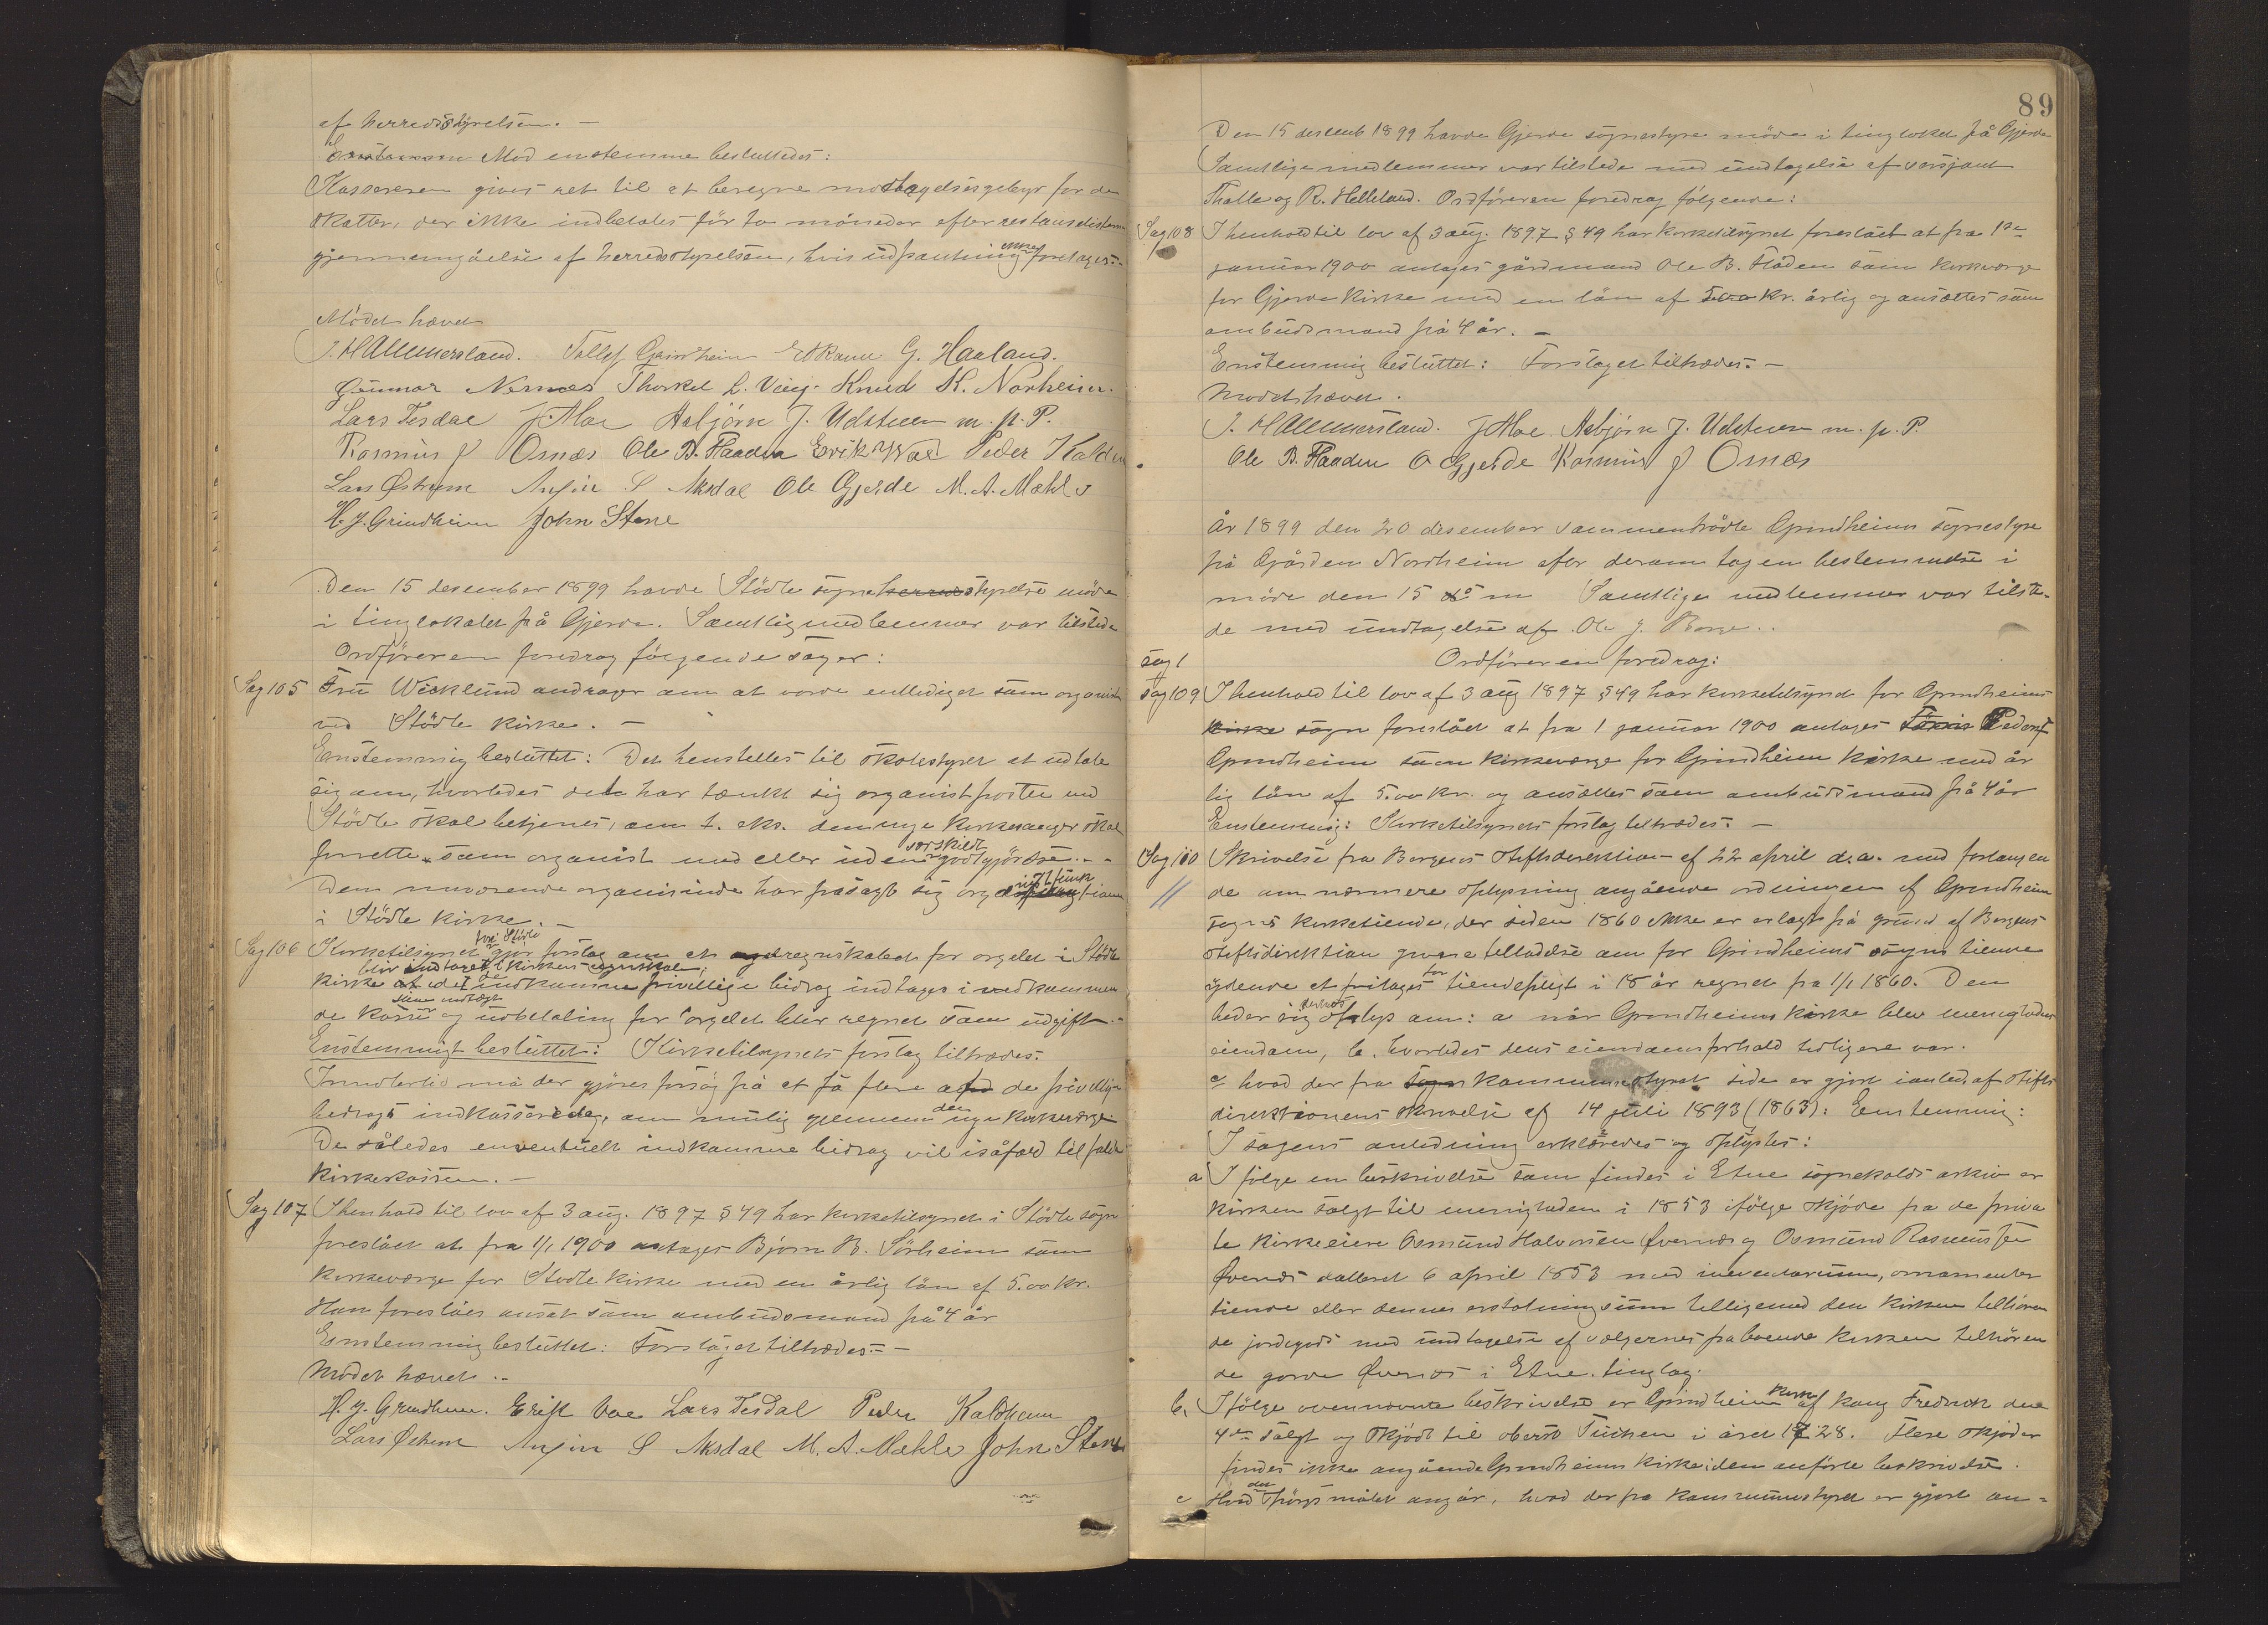 af herredsstyrelsen. —
Mod en stemme besluttedes:
Kassereren gives ret til at beregne modtagelsesgebyr for de
skatter, der ikke indbetales før to måneder efter restanselistens
gjennemgåelse af herredsstyrelsen, hvis udpantning ikke foretages.-
Mödet hævet
J. H Allmersland. Tollef Grindheim G. Haaland.
Gunnar Nernæs Thorkel L. Vinj. Knud K. Norheim.
Lars Tesdal J Moe Asbjörn J. Udstuen m. p. P.
Rasmus J Osnæs Ole B. Haaden Erik Vad Peder Kaldh
Lars Østrem Anfin S Aksdal Ole Gjerde M. A. Mæhle
H. J. Grindheim John Stene
Den 15 desember 1899 havde Stödle sogneherredsstyrelse möde
i tinglokalet på Gjerde. Samtlig medlemmer var tilstede
Ordföreren foredrog fölgende sager:
Sag 105 Fru Wicklund andrager om at vorde entlediget som organist
ved Stödle kirke. —
Enstemmig besluttet: Det henstilles til skolestyret at udtale
sig om, hvorledes det har tænkt sig organistposten ved
Stödle skal betjenes, om t. eks. den nye kirkesanger skal
forrette som organist med eller uden særskildt godtgjörelse. - -
Den nuværende organistinde har frasagt sig
i Stödle kirke. —
Sag 106 Kirketilsynet for Stödle gjör forslag om at regnskabet for orgelet i Stödle
blir indtaget i kirkens regnskab,
kirke at de indkomne frivillige bidrag indtages i vedkommen
de kasse som indtægt og udbetaling for orgelet blir regnet som udgift.-
Enstemmigt besluttet: Kirketilsynets forslag tiltrædes.
Imidlertid må der gjöres forsög på at få flere af de frivillige
bidrag indkasserede, om mulig gjennem den nye kirkeværge
De således eventuelt indkomne bidrag vil isåfald tilfalde
kirkekassen. —
Sag 107 I henhold til lov af 3 aug. 1897 § 49 har kirketilsynet i Stödle sogn
foreslået at fra 1/1 1900 antages Björn B. Sörheim som
kirkeværge for Stödle kirke med en årlig lön af 5.00 kr.
Han foreslåes ansat som ombudsmand på 4 år
Enstemmig besluttet: Forslaget tiltrædes. —
Mödet hævet. -
H. J. Grindheim. Erik Vae Lars Tesdal Peder Kaldheim
Lars Østrem Anfin S Aksdal M. A. Mæhle John Stene
89
Den 15 desemb 1899 havde Gjerde sognestyre möde i tinglokal på Gjerde
Samtlige medlemmer var tilstede med undtagelse af
Thalle og R. Helleland. Ordföreren foredrog fölgende:
Sag 108 I henhold til lov af 3 aug. 1897 § 49 har kirketilsynet foreslået at fra 1ste
januar 1900 antages gårdmand Ole B. Håden som kirkeværge
for Gjerde kirke med en lön af 5.00 kr. årlig og ansættes som
ombudsmand på 4 år. —
Enstemmig besluttet: Forslaget tiltrædes. —
Mödet hævet.
J. H Allmersland. J Moe Asbjörn J. Udstuen m. p. P.
Ole B. Haaden O Gjerde Rasmus J Osnæs
År 1899 den 20 desember sammentrådte Grindheim sognestyre
på Gården Nordheim efter derom tagen bestemmelse i
möde den 15 ds m Samtlige medlemmer var tilste-
de med undtagelse af Ole J. Borge..
Ordföreren foredrog:
Sag 1
Sag 109 I henhold til lov af 3 aug 1897 § 49 har kirketilsynet for Grindheims
kirke sogn foreslået at fra 1 januar 1900 antages Peder
Grindheim som kirkeværge for Grindheim kirke med år
lig lön af 5.00 kr. og ansættes som ombudsmand på 4 år
Enstemmig: Kirketilsynets forslag tiltrædes. —
Sag 100 Skrivelse fra Bergens stiftsdirektion af 22 april d. a. med forlangen
11 de om nærmere oplysning angående ordningen af Grindheim
sogns kirketiende, der siden 1860 ikke er erlagt på grund af Bergens
stiftsdirektion givne tilladelse om for Grindheims sogns tiende
ydende at fritages for tiendepligt i 18 år regnet fra 1/1 1860. Den
beder sig desuden oplyst om: a når Grindheims kirke blev menighedens
eiendom, b. hvorledes dens eiendomsforhold tidligere var.
c hvad der fra sogn kommunestyrets side er gjort ianled. af stifts
direktionens skrivelse af 14 juli 1893 (1863): Enstemmig:
I sagens anledning erklæredes og oplystes:
a I fölge en beskrivelse som findes i Etne sognekalds arkiv er
kirken solgt til menigheden i 1853 ifölge skjöde fra de priva
te kirkeeiere Osmund Halvorsen Øvernæs og Osmund Rasmussen
Øvernæs dateret 6 april 1853 med inventarium, ornamenter
tiende eller dennes erstatningssum tilligemed den kirken tilhören
de jordegods med undtagelse af sælgernes paboende kirken tilhören
de gaard Øvernæs i Etne tinglag.
b. Ifölge ovennævnte beskrivelse er Grindheim kirke af kong Fredrik den
4de solgt og skjödt til oberst Tuchsen i året 1728. Flere skjöder
findes ikke angående Grindheims kirke i den anförte beskrivelse.
c Hvad det spörgsmålet angår, hvad der fra kommunestyret er gjort an-